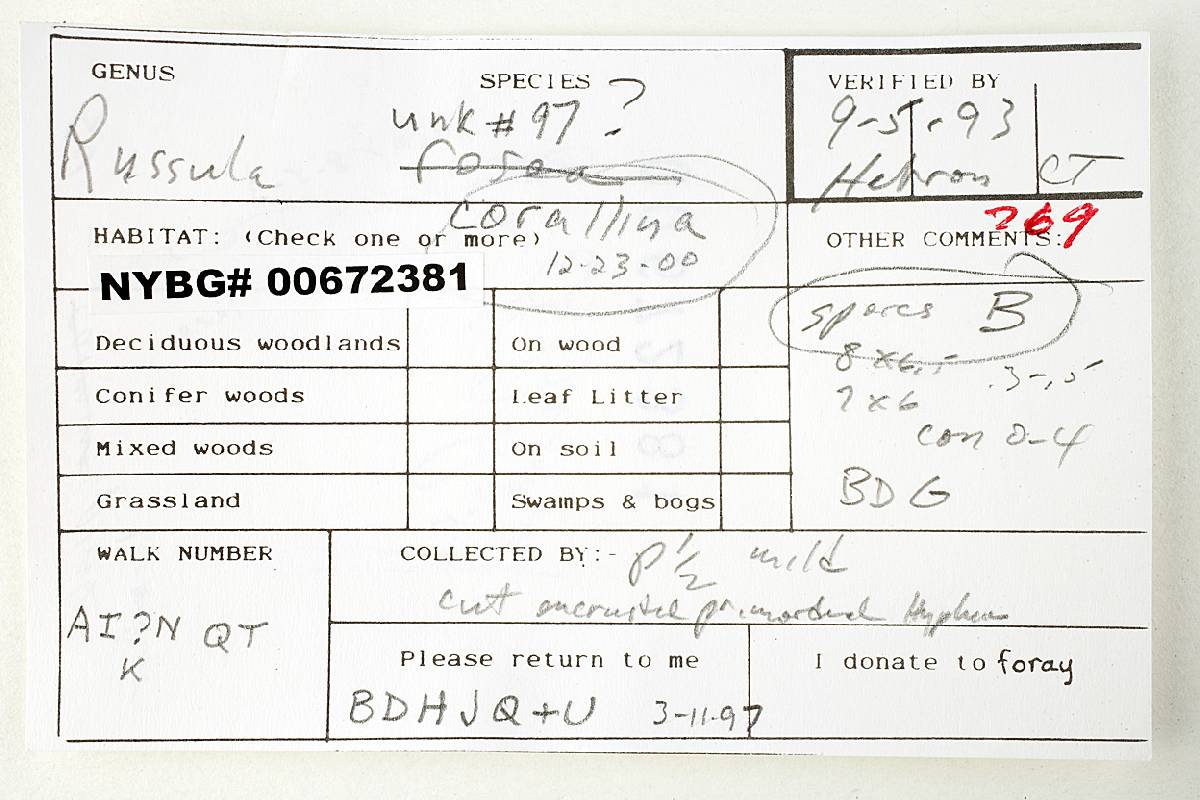 GENUS SPECIES VERIFIED BY
unk # 97 ? 9-5-93
Russula Hebron CT
corallina 269
HABITAT: (Check one or more) OTHER COMMENTS:
12-23-00
NYBG# 00672381
spores B
Deciduous woodlands On wood
8 x 6.5 .3-.5
Conifer woods Leaf Litter
7 x 6
con 0-4
Mixed woods On soil
Grassland Swamps & bogs
BDG
WALK NUMBER COLLECTED BY:- P 1/2 mild
cut encrusted primordial Hyphae
AI?N QT
K
Please return to me I donate to foray
BDHJQ+U 3-11-97